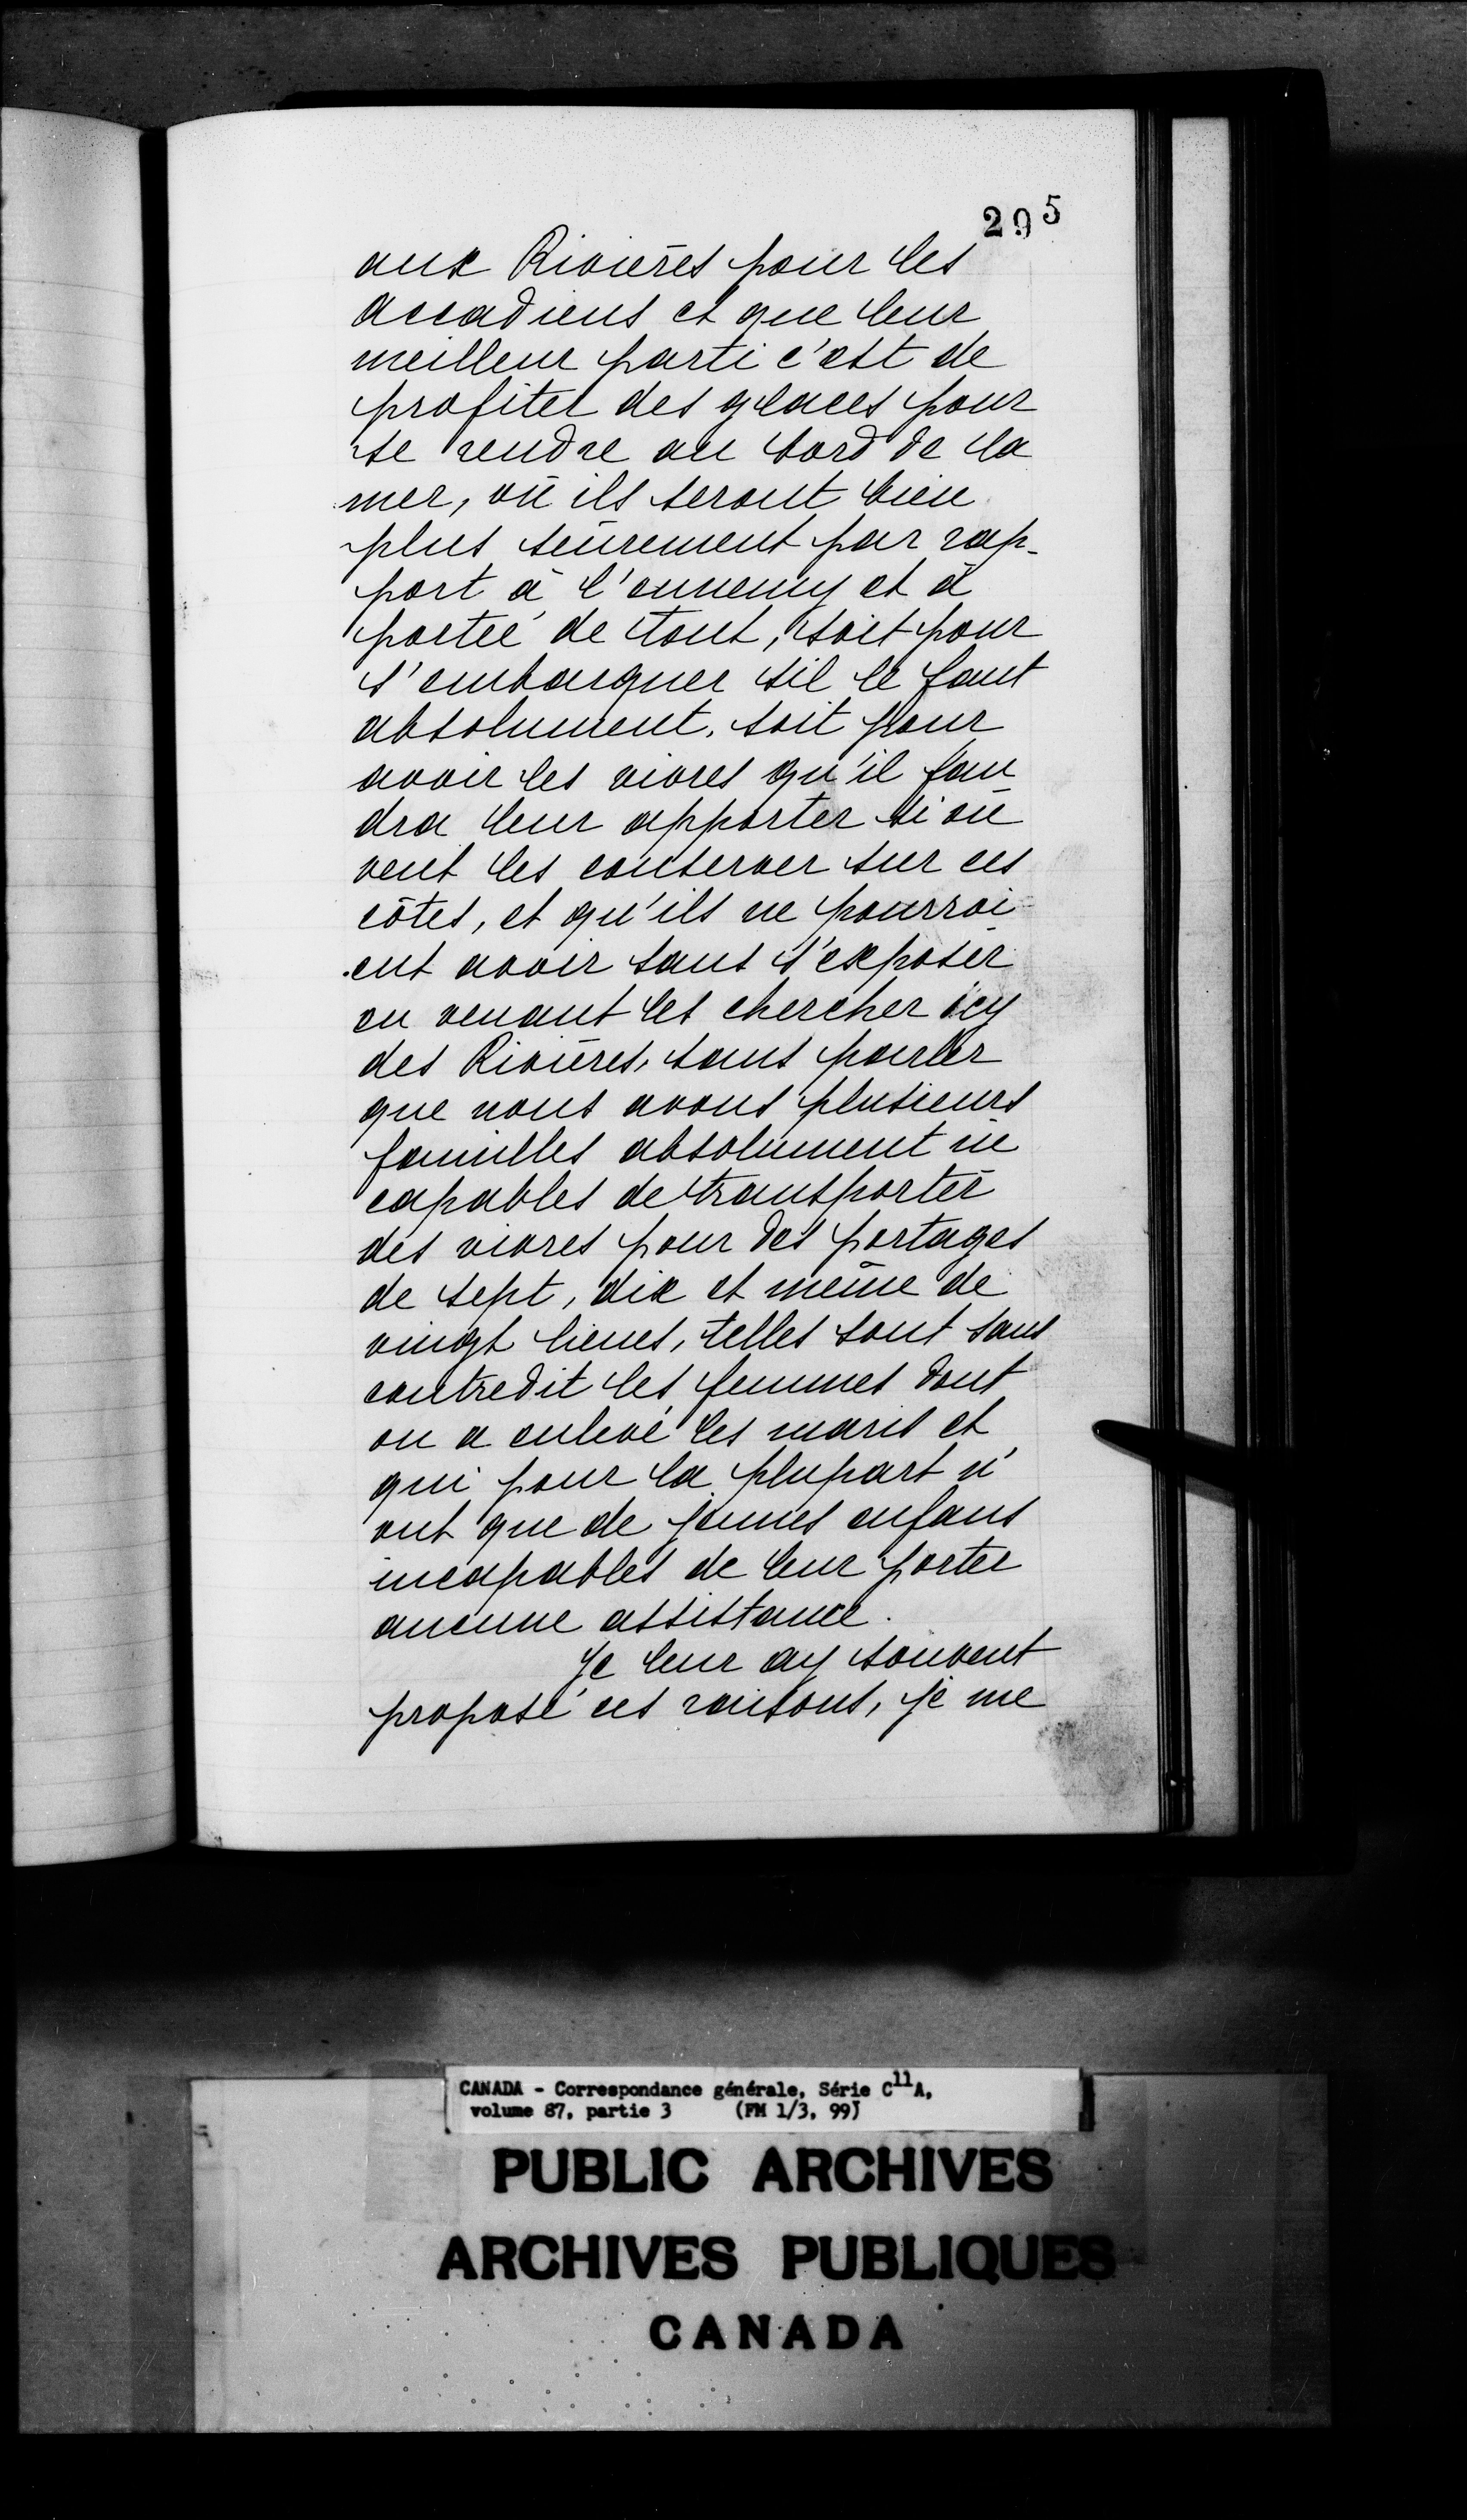 295
aux Rivières pour les
accadiens et que leur
meilleur parti c'est de
profiter des glaces pour
se rendre au bord de la
mer, où ils seront bien
plus seûrement par rap-
port à l'ennemy et à
porteé de tout, soit pour
s'embarquer sil le faut
absolument, soit pour
avoir les vivres qu'il fau
dra leur apporter si on
veut les conserver sur ces
côtes, et qu'ils ne pourroi
ent avoir sans s'exposer
en venant les chercher icy
des Rivières, sans parler
que nous avons plusieurs
familles absolument in
capables de transporter
des vivres pour des portages
de sept, dix et même de
vingt lieues, telles sont sans
contredit les femmes dont
on a enlevé les maris et
qui pour la plupart n'
ont que de jeunes enfans
incapables de leur porter
aucune assistance.
Je leur ay souvent
proposé ces raisons, je me
CANADA - Correspondance générale, Série C11A,
volume 87, partie 3 (FM 1/3, 99)
PUBLIC ARCHIVES
ARCHIVES PUBLIQUES
CANADA